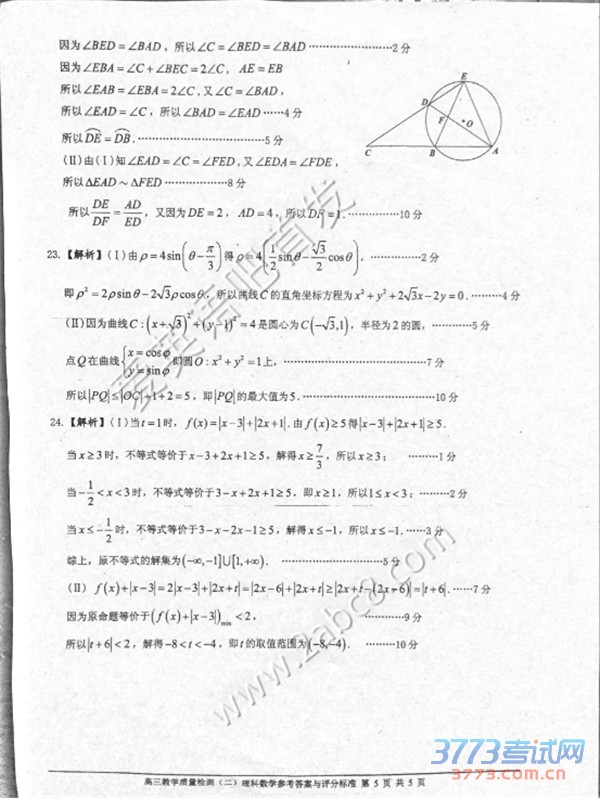 因为∠BED=∠BAD，所以∠C=∠BED=∠BAD ……………………2分
因为∠EBA=∠C+∠BEC=2∠C，AE=EB
所以∠EAB=∠EBA=2∠C，又∠C=∠BAD，
所以∠EAD=∠C，所以∠BAD=∠EAD ……4分
所以DE=DB. ……………………5分
(II)由(I)知∠EAD=∠C=∠FED，又∠EDA=∠FDE，
所以ΔEAD~ΔFED ……………8分
所以DE/DF=AD/ED，又因为DE=2，AD=4，所以DF=1. …………10分
E
D
F
O
C
B
A
23.【解析】(I)由ρ=4sin(θ-π/3)得ρ=4(1/2 sinθ-√3/2 cosθ)， …………2分
即ρ²=2ρsinθ-2√3ρcosθ，所以曲线C的直角坐标方程为x²+y²+2√3x-2y=0. ………4分
(II)因为曲线C:(x+√3)²+(y-1)²=4是圆心为C(-√3,1)，半径为2的圆， …………5分
点Q在曲线{x=cosφ y=sinφ即圆O:x²+y²=1上， ……………………7分
所以|PQ|≤|OC|+1+2=5，即|PQ|的最大值为5. ……………………10分
24.【解析】(I)当t=1时，f(x)=|x-3|+|2x+1|.由f(x)≥5得|x-3|+|2x+1|≥5.
当x≥3时，不等式等价于x-3+2x+1≥5，解得x≥7/3，所以x≥3； ………1分
当-1/2<x<3时，不等式等价于3-x+2x+1≥5，即x≥1，所以1≤x<3； ………2分
当x≤-1/2时，不等式等价于3-x-2x-1≥5，解得x≤-1，所以x≤-1. ……3分
综上，原不等式的解集为(-∞,-1]∪[1,+∞). ……………………5分
(II) f(x)+|x-3|=2|x-3|+|2x+t|=|2x-6|+|2x+t|≥|2x+t-(2x-6)|=|t+6|. ……7分
因为原命题等价于(f(x)+|x-3|)min<2， …………9分
所以|t+6|<2，解得-8<t<-4，即t的取值范围为(-8,-4). …………10分
www.2abc8.com
高三教学质量检测（二）理科数学参考答案与评分标准 第 5 页 共 5 页
3773考试网
www.3773.com.cn